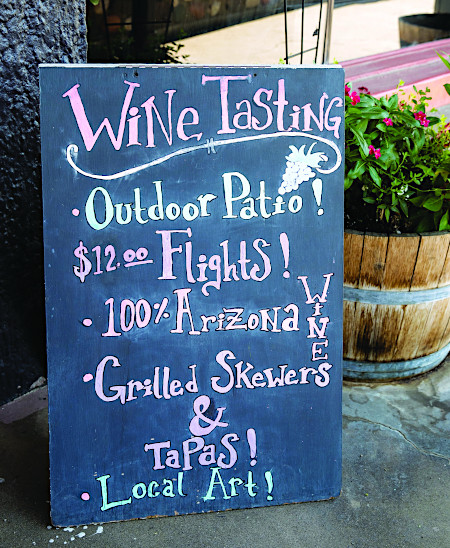 Wine Tasting
· Outdoor Patio!
$12.00 Flights!
· 100% Arizona WINES
· Grilled Skewers
&
Tapas!
· Local Art!